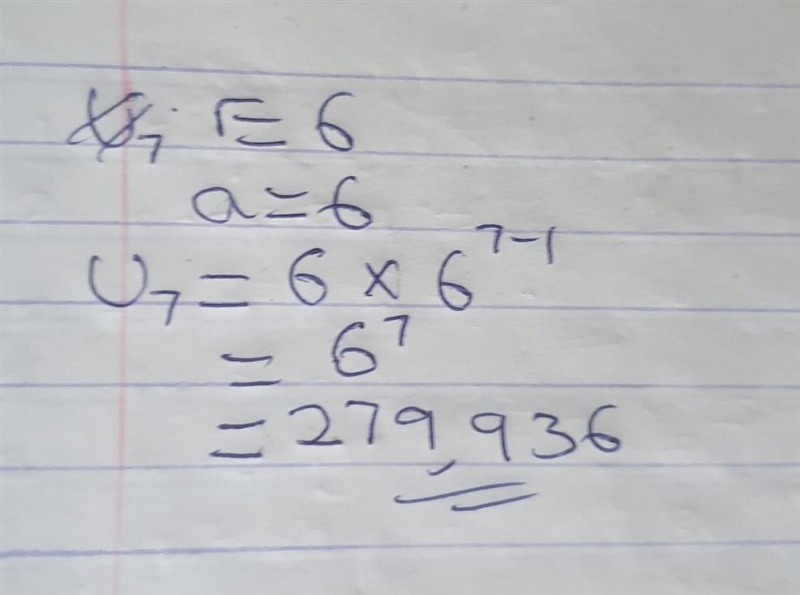 r = 6
a = 6
U₇ = 6 × 6⁷⁻¹
= 6⁷
= 279,936